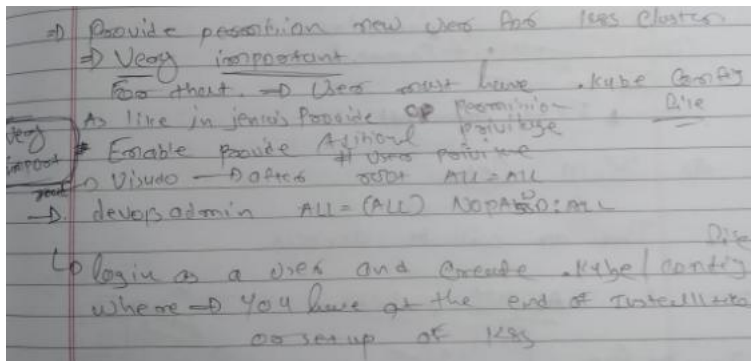 ⇒ Provide permission new user for k8s cluster.
⇒ Very important
For that ⇒ User must have .kube config
Dire
As like in jenkis Provide permission
privilege
very
import
# Enable Provide Aditional
# User privilege
Visudo → after root ALL=ALL
→ devopsadmin ALL=(ALL) NOPASSWD:ALL
Dire
↳ login as a user and Create .kube/config
where ⇒ you have at the end of
or setup of k8s